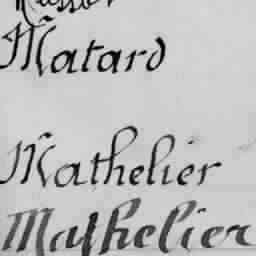 Matard
Mathelier
Mathelier